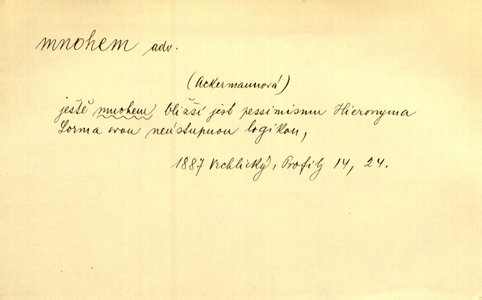 mnohem adv.
(Ackermannová)
ještě mnohem bližší jest pessimismu Hieronyma
Lorma svou neústupnou logikou,
1887 Vrchlický, Profily 14, 24.